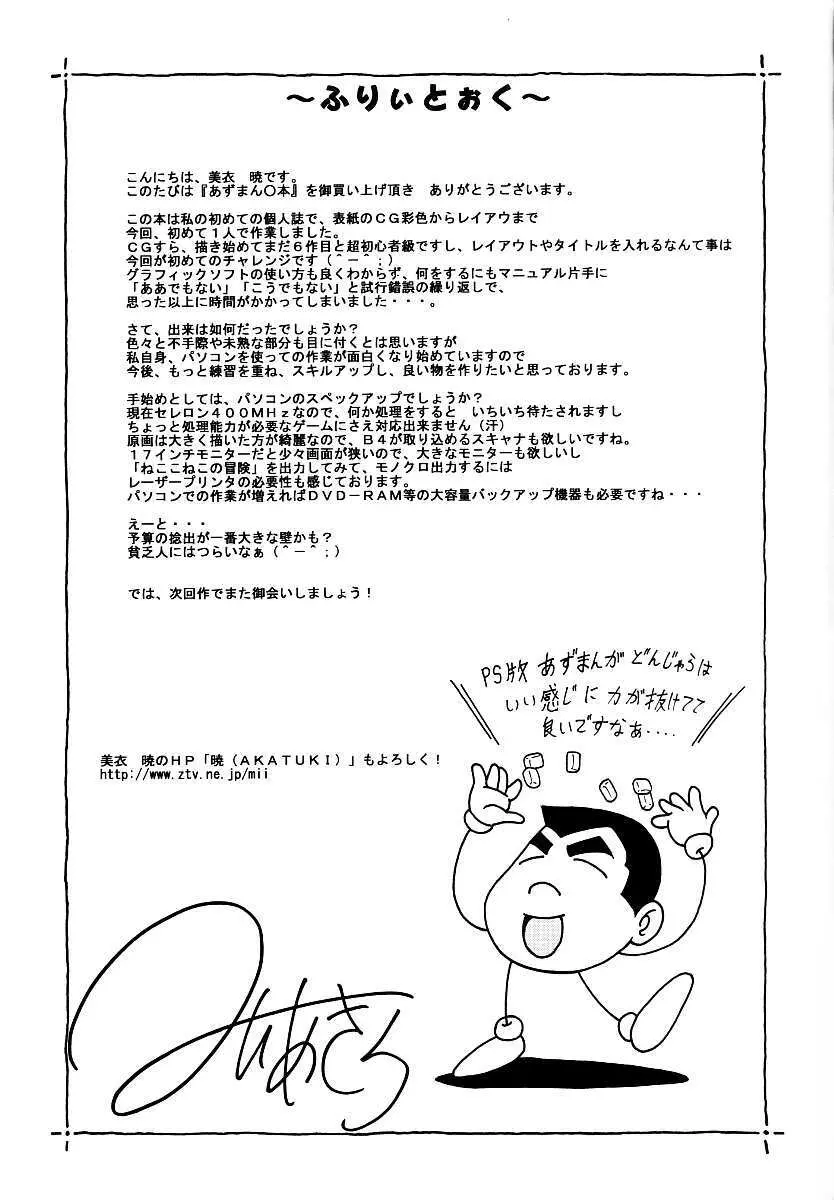 ～ふりぃとぉく～
こんにちは、美衣　暁です。
このたびは『あずまん〇本』を御買い上げ頂き　ありがとうございます。
この本は私の初めての個人誌で、表紙のＣＧ彩色からレイアウまで
今回、初めて１人で作業しました。
ＣＧすら、描き始めてまだ６作目と超初心者級ですし、レイアウトやタイトルを入れるなんて事は
今回が初めてのチャレンジです（＾－＾；）
グラフィックソフトの使い方も良くわからず、何をするにもマニュアル片手に
「ああでもない」「こうでもない」と試行錯誤の繰り返しで、
思った以上に時間がかかってしまいました・・・。
さて、出来は如何だったでしょうか？
色々と不手際や未熟な部分も目に付くとは思いますが
私自身、パソコンを使っての作業が面白くなり始めていますので
今後、もっと練習を重ね、スキルアップし、良い物を作りたいと思っております。
手始めとしては、パソコンのスペックアップでしょうか？
現在セレロン４００ＭＨｚなので、何か処理をすると　いちいち待たされますし
ちょっと処理能力が必要なゲームにさえ対応出来ません（汗）
原画は大きく描いた方が綺麗なので、Ｂ４が取り込めるスキャナも欲しいですね。
１７インチモニターだと少々画面が狭いので、大きなモニターも欲しいし
「ねここねこの冒険」を出力してみて、モノクロ出力するには
レーザープリンタの必要性も感じております。
パソコンでの作業が増えればＤＶＤ－ＲＡＭ等の大容量バックアップ機器も必要ですね・・・
えーと・・・
予算の捻出が一番大きな壁かも？
貧乏人にはつらいなぁ（＾－＾；）
では、次回作でまた御会いしましょう！
PS版 あずまんが どんじゃらは
いい感じに 力が抜けてて
良いですなぁ・・・・
美衣　暁のＨＰ「暁（ＡＫＡＴＵＫＩ）」もよろしく！
http://www.ztv.ne.jp/mii